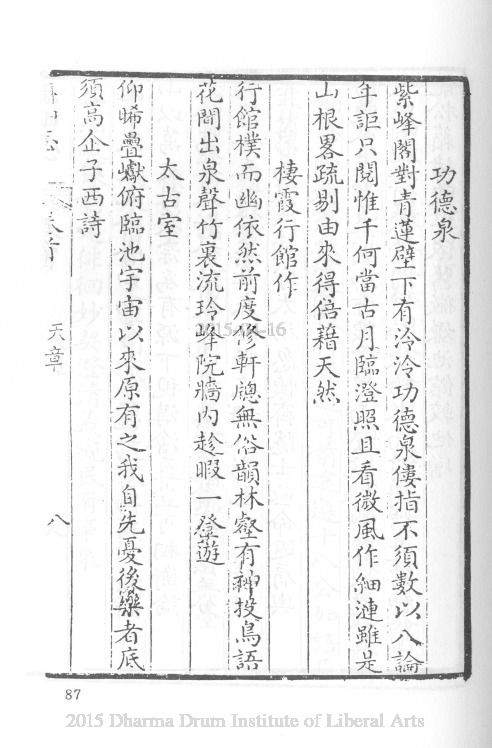 功德泉
紫峰閣對青蓮壁下有泠泠功德泉僂指不須數以八論
年詎只閱惟千何當古月臨澄照且看微風作細漣雖是
山根畧疏剔由來得倍藉天然
棲霞行館作
行館樸而幽依然前度修軒牕無俗韻林壑有神投鳥語
花間出泉聲竹裏流玲峰院牆內趁暇一登遊
太古室
仰晞疊巘俯臨池宇宙以來原有之我自先憂後樂者底
須高企子西詩
卷首
天章
八
2015
16
87
2015 Dharma Drum Institute of Liberal Arts